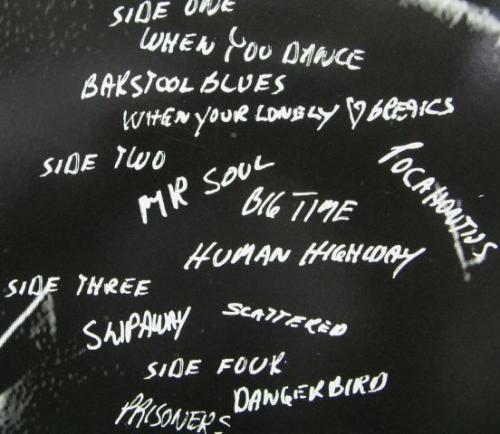 SIDE ONE
WHEN YOU DANCE
BARSTOOL BLUES
WHEN YOUR LONELY ♡ BREAKS
SIDE TWO
MR SOUL
BIG TIME
POCAHONTUS
HUMAN HIGHWAY
SIDE THREE
SLIPAWAY
SCATTERED
SIDE FOUR
DANGERBIRD
PRISONERS